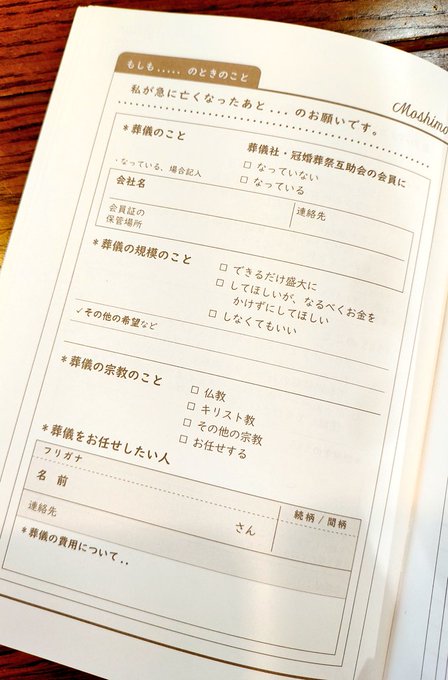 もしも..... のときのこと
Moshimo
私が急に亡くなったあと... のお願いです。
*葬儀のこと
葬儀社・冠婚葬祭互助会の会員に
□ なっていない
□ なっている
・なっている、場合記入
会社名
連絡先
会員証の
保管場所
*葬儀の規模のこと
□ できるだけ盛大に
□ してほしいが、なるべくお金を
かけずにしてほしい
□ しなくてもいい
✓その他の希望など
*葬儀の宗教のこと
□ 仏教
□ キリスト教
□ その他の宗教
□ お任せする
*葬儀をお任せしたい人
フリガナ
名 前
さん
続柄/間柄
連絡先
*葬儀の費用について..